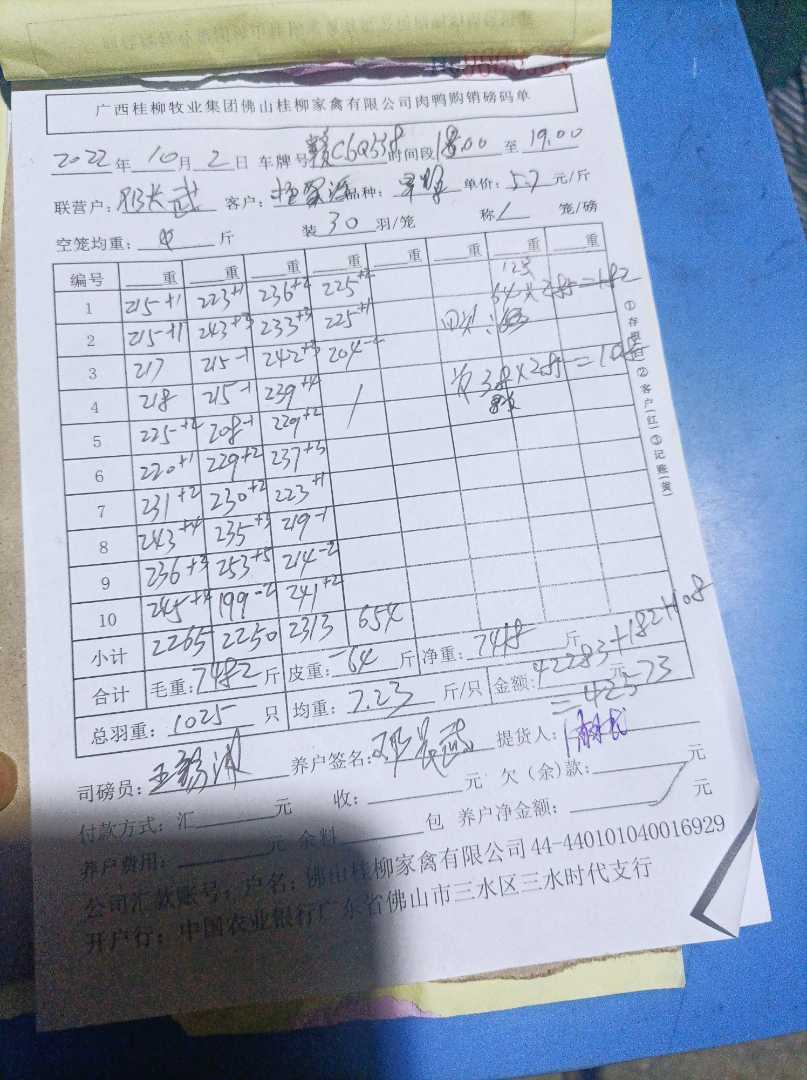 广西桂柳牧业集团佛山桂柳家禽有限公司肉鸭购销磅码单
2022年10月2日 车牌号 C6Q538 时间段18:00至19:00
联营户: 邓长武 客户: 品种: 单价:5.7元/斤
空笼均重: 斤 装30羽/笼 称 笼/磅
编号 重 重 重 重 重 重 重 重
1 215+1 223+1 236+2 225+2
2 215+1 243+3 233+3 225+1
3 217 215-1 242+3 204
4 218 215-1 239+4 /
5 225+2 208-1 229+2
6 220+1 229+2 237+3
7 231+2 230+2 223+1
8 243+4 235+3 219-1
9 236+3 253+5 214-2
10 245+4 199-2 241+2
小计 2265 2250 2313 654
合计 毛重:7482斤 皮重:-64斤 净重:7418斤 金额:42283+182+108元
=42573
总羽重:1025只 均重:7.23斤/只
64×2.85=182
38×2.85=108
①存根(白)②客户(红)③记账(黄)
司磅员: 养户签名:邓长武 提货人:
付款方式:汇 元 收: 元 欠(余)款: 元
养户费用: 元 余料 包 养户净金额: 元
公司汇款账号:户名:佛山桂柳家禽有限公司44-440101040016929
开户行:中国农业银行广东省佛山市三水区三水时代支行